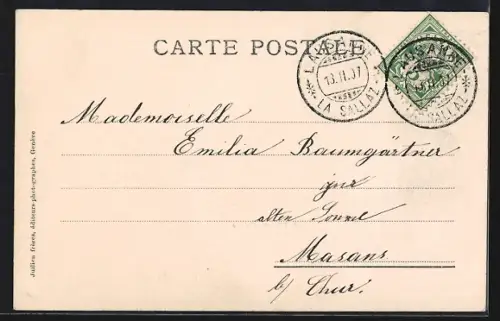 CARTE POSTALE
LAUSANNE
13.II.07
LA SALLAZ
LAUSANNE
13.II.07
LA SALLAZ
Mademoiselle
Emilia Baumgärtner
zur
alten Sonne
Masans
b/ Chur.
Jullien frères, éditeurs-photographes, Genève